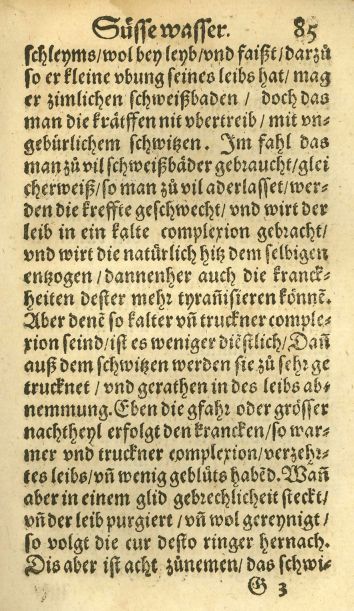 Süsse wasser. 85
schleyms/wol bey leyb/vnd faißt/darzů
so er kleine vbung seines leibs hat/mag
er zimlichen schweißbaden / doch das
man die krätffen nit vbertreib/mit vn⸗
gebürlichem schwitzen. Im fahl das
man zů vil schweißbäder gebraucht/glei
cherweiß/so man zů vil aderlasset/wer⸗
den die kreffte geschwecht/ vnd wirt der
leib in ein kalte complexion gebracht/
vnd wirt die natürlich hitz dem selbigen
entzogen/dannenher auch die kranck⸗
heiten dester mehr tyrañisieren könnē.
Aber denē so kalter vñ truckner comple⸗
xion seind/ist es weniger diēstlich/Dañ
auß dem schwitzen werden sie zů sehr ge
trucknet / vnd gerathen in des leibs ab⸗
nemmung. Eben die gfahr oder grösser
nachtheyl erfolgt den krancken/so war⸗
mer vnd truckner complexion/verzehr⸗
tes leibs/vñ wenig geblüts habēd. Wañ
aber in einem glid gebrechlicheit steckt/
vñ der leib purgiert/vñ wol gereynigt/
so volgt die cur desto ringer hernach.
Dis aber ist acht zůnemen/das schwi⸗
G 3